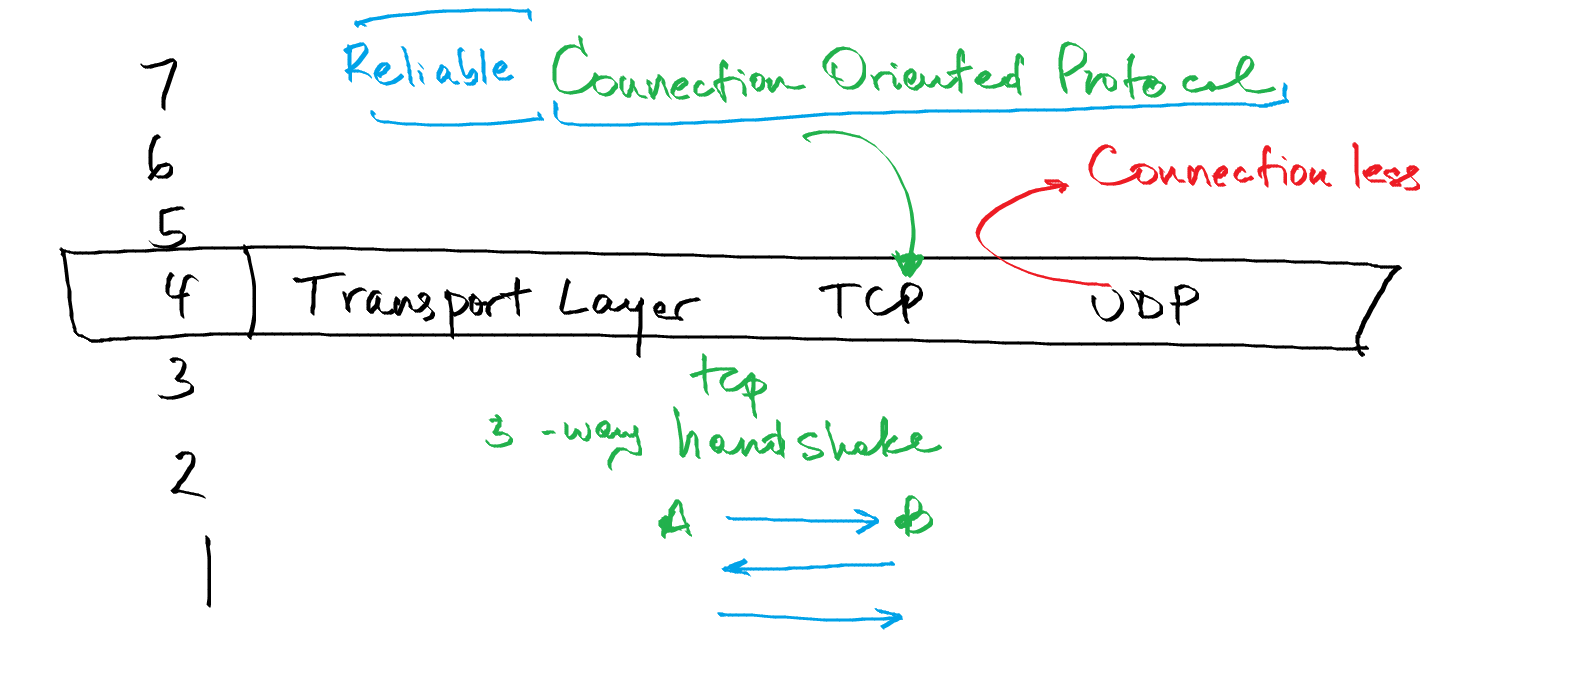 7
Reliable Connection Oriented Protocol
6
Connection less
5
4 Transport Layer TCP UDP
3
tcp
3-way handshake
2
A B
1